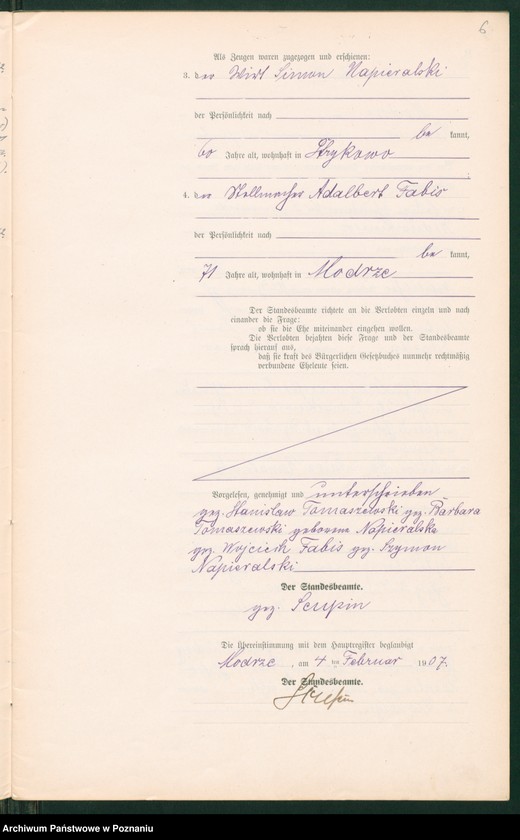 6
Als Zeugen waren zugezogen und erschienen:
3. der Wirt Simon Napieralski
der Persönlichkeit nach
be kannt,
60 Jahre alt, wohnhaft in Strykowo
4. der Stellmacher Adalbert Fabis
der Persönlichkeit nach
be kannt,
71 Jahre alt, wohnhaft in Modrze
Der Standesbeamte richtete an die Verlobten einzeln und nach
einander die Frage:
ob sie die Ehe miteinander eingehen wollen.
Die Verlobten bejahten diese Frage und der Standesbeamte
sprach hierauf aus,
daß sie kraft des Bürgerlichen Gesetzbuchs nunmehr rechtmäßig
verbundene Eheleute seien.
Vorgelesen, genehmigt und unterschrieben
gez. Stanislaw Tomaszewski gez. Barbara
Tomaszewski geborene Napieralska
gez. Wojciech Fabis gez. Szymon
Napieralski
Der Standesbeamte.
gez. Scupin
Die Übereinstimmung mit dem Hauptregister beglaubigt
Modrze, am 4 ten Februar 1907.
Der Standesbeamte.
Scupin
Archiwum Państwowe w Poznaniu